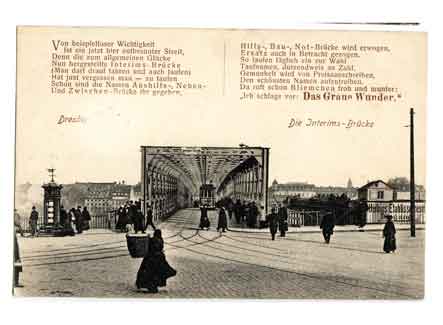 Von beispielloser Wichtigkeit
Ist ein jetzt hier entbrannter Streit,
Denn die zum allgemeinen Glücke
Nun hergestellte Interims-Brücke
(Man darf drauf fahren und auch laufen)
Hat just vergessen man — zu taufen
Schon sind die Namen Aushilfs-, Neben-
Und Zwischen-Brücke ihr gegeben,
Hilfs-, Bau-, Not-Brücke wird erwogen,
Ersatz auch in Betracht gezogen.
So laufen täglich ein zur Wahl
Taufnamen, dutzendweis an Zahl.
Gemunkelt wird von Preisausschreiben,
Den schönsten Namen aufzutreiben.
Da ruft schon Bliemchen froh und munter:
„Ich schlage vor: Das Graue Wunder."
Dresden
Die Interims-Brücke